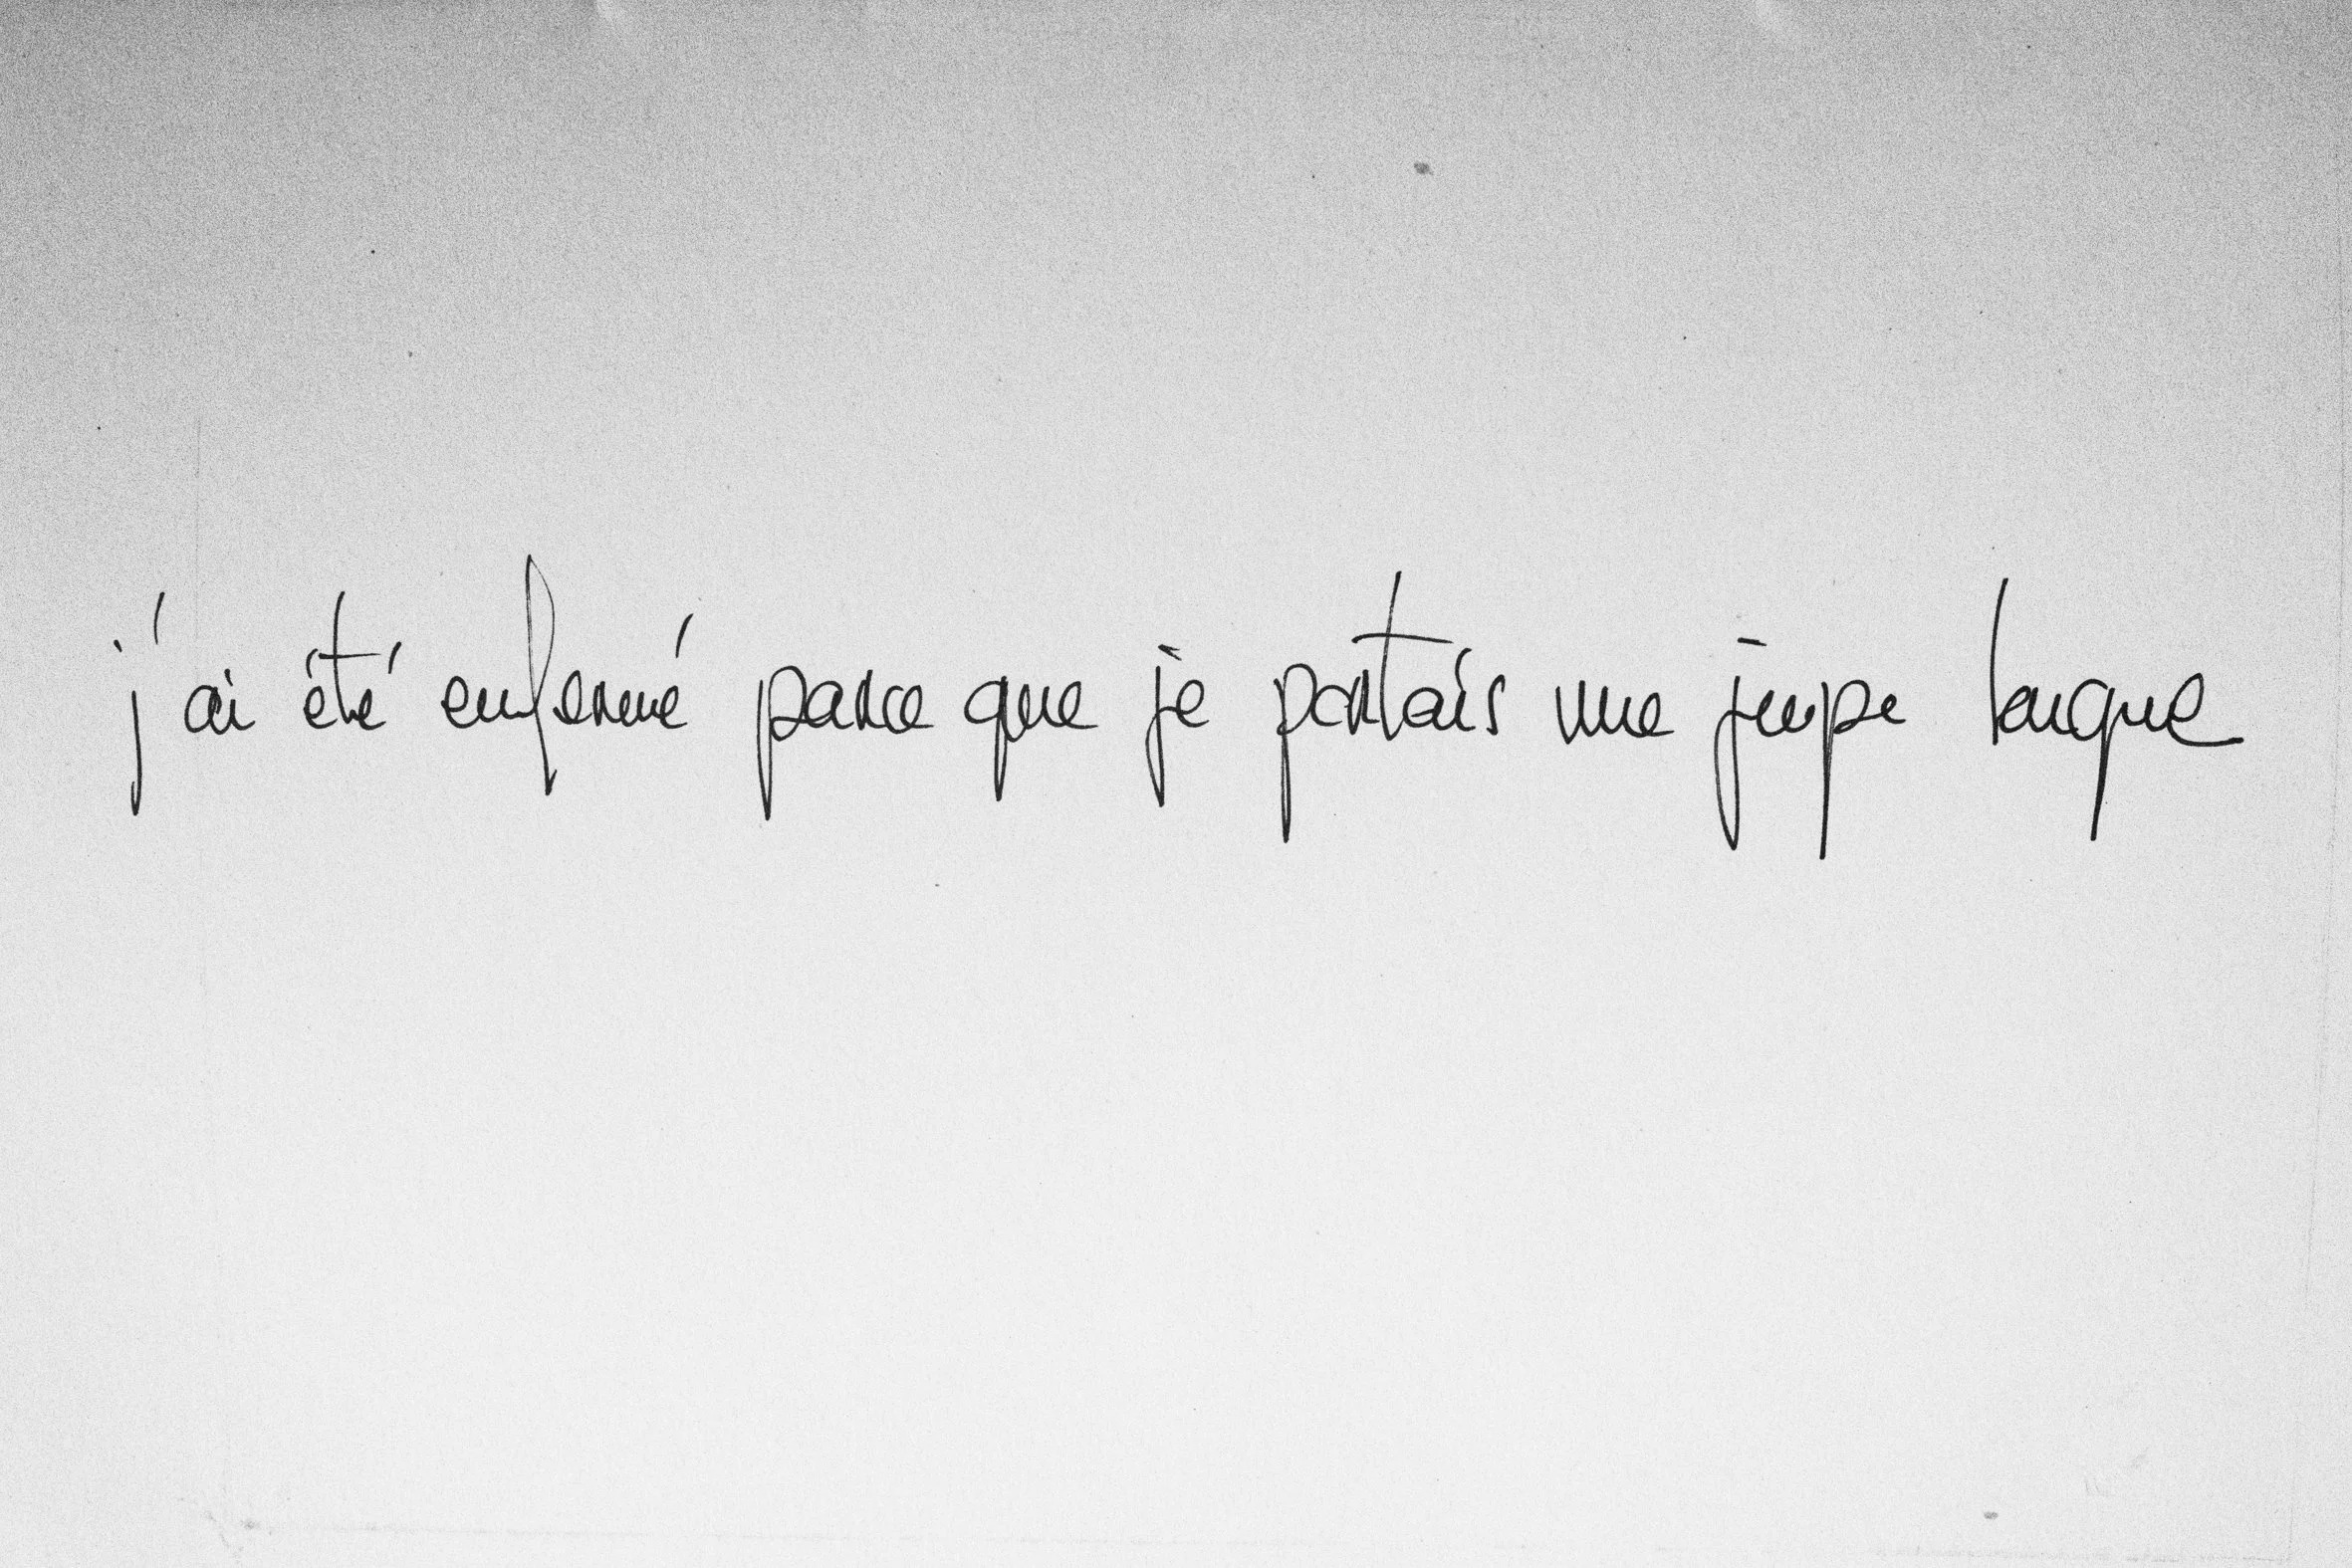 j'ai été enfermé parce que je portais une jupe longue